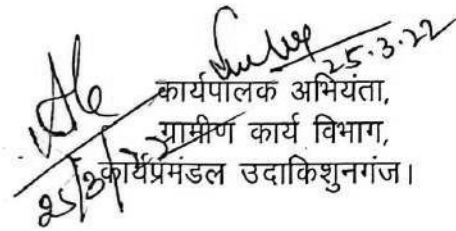 25.3.22
कार्यपालक अभियंता,
ग्रामीण कार्य विभाग,
कार्यप्रमंडल उदाकिशुनगंज।